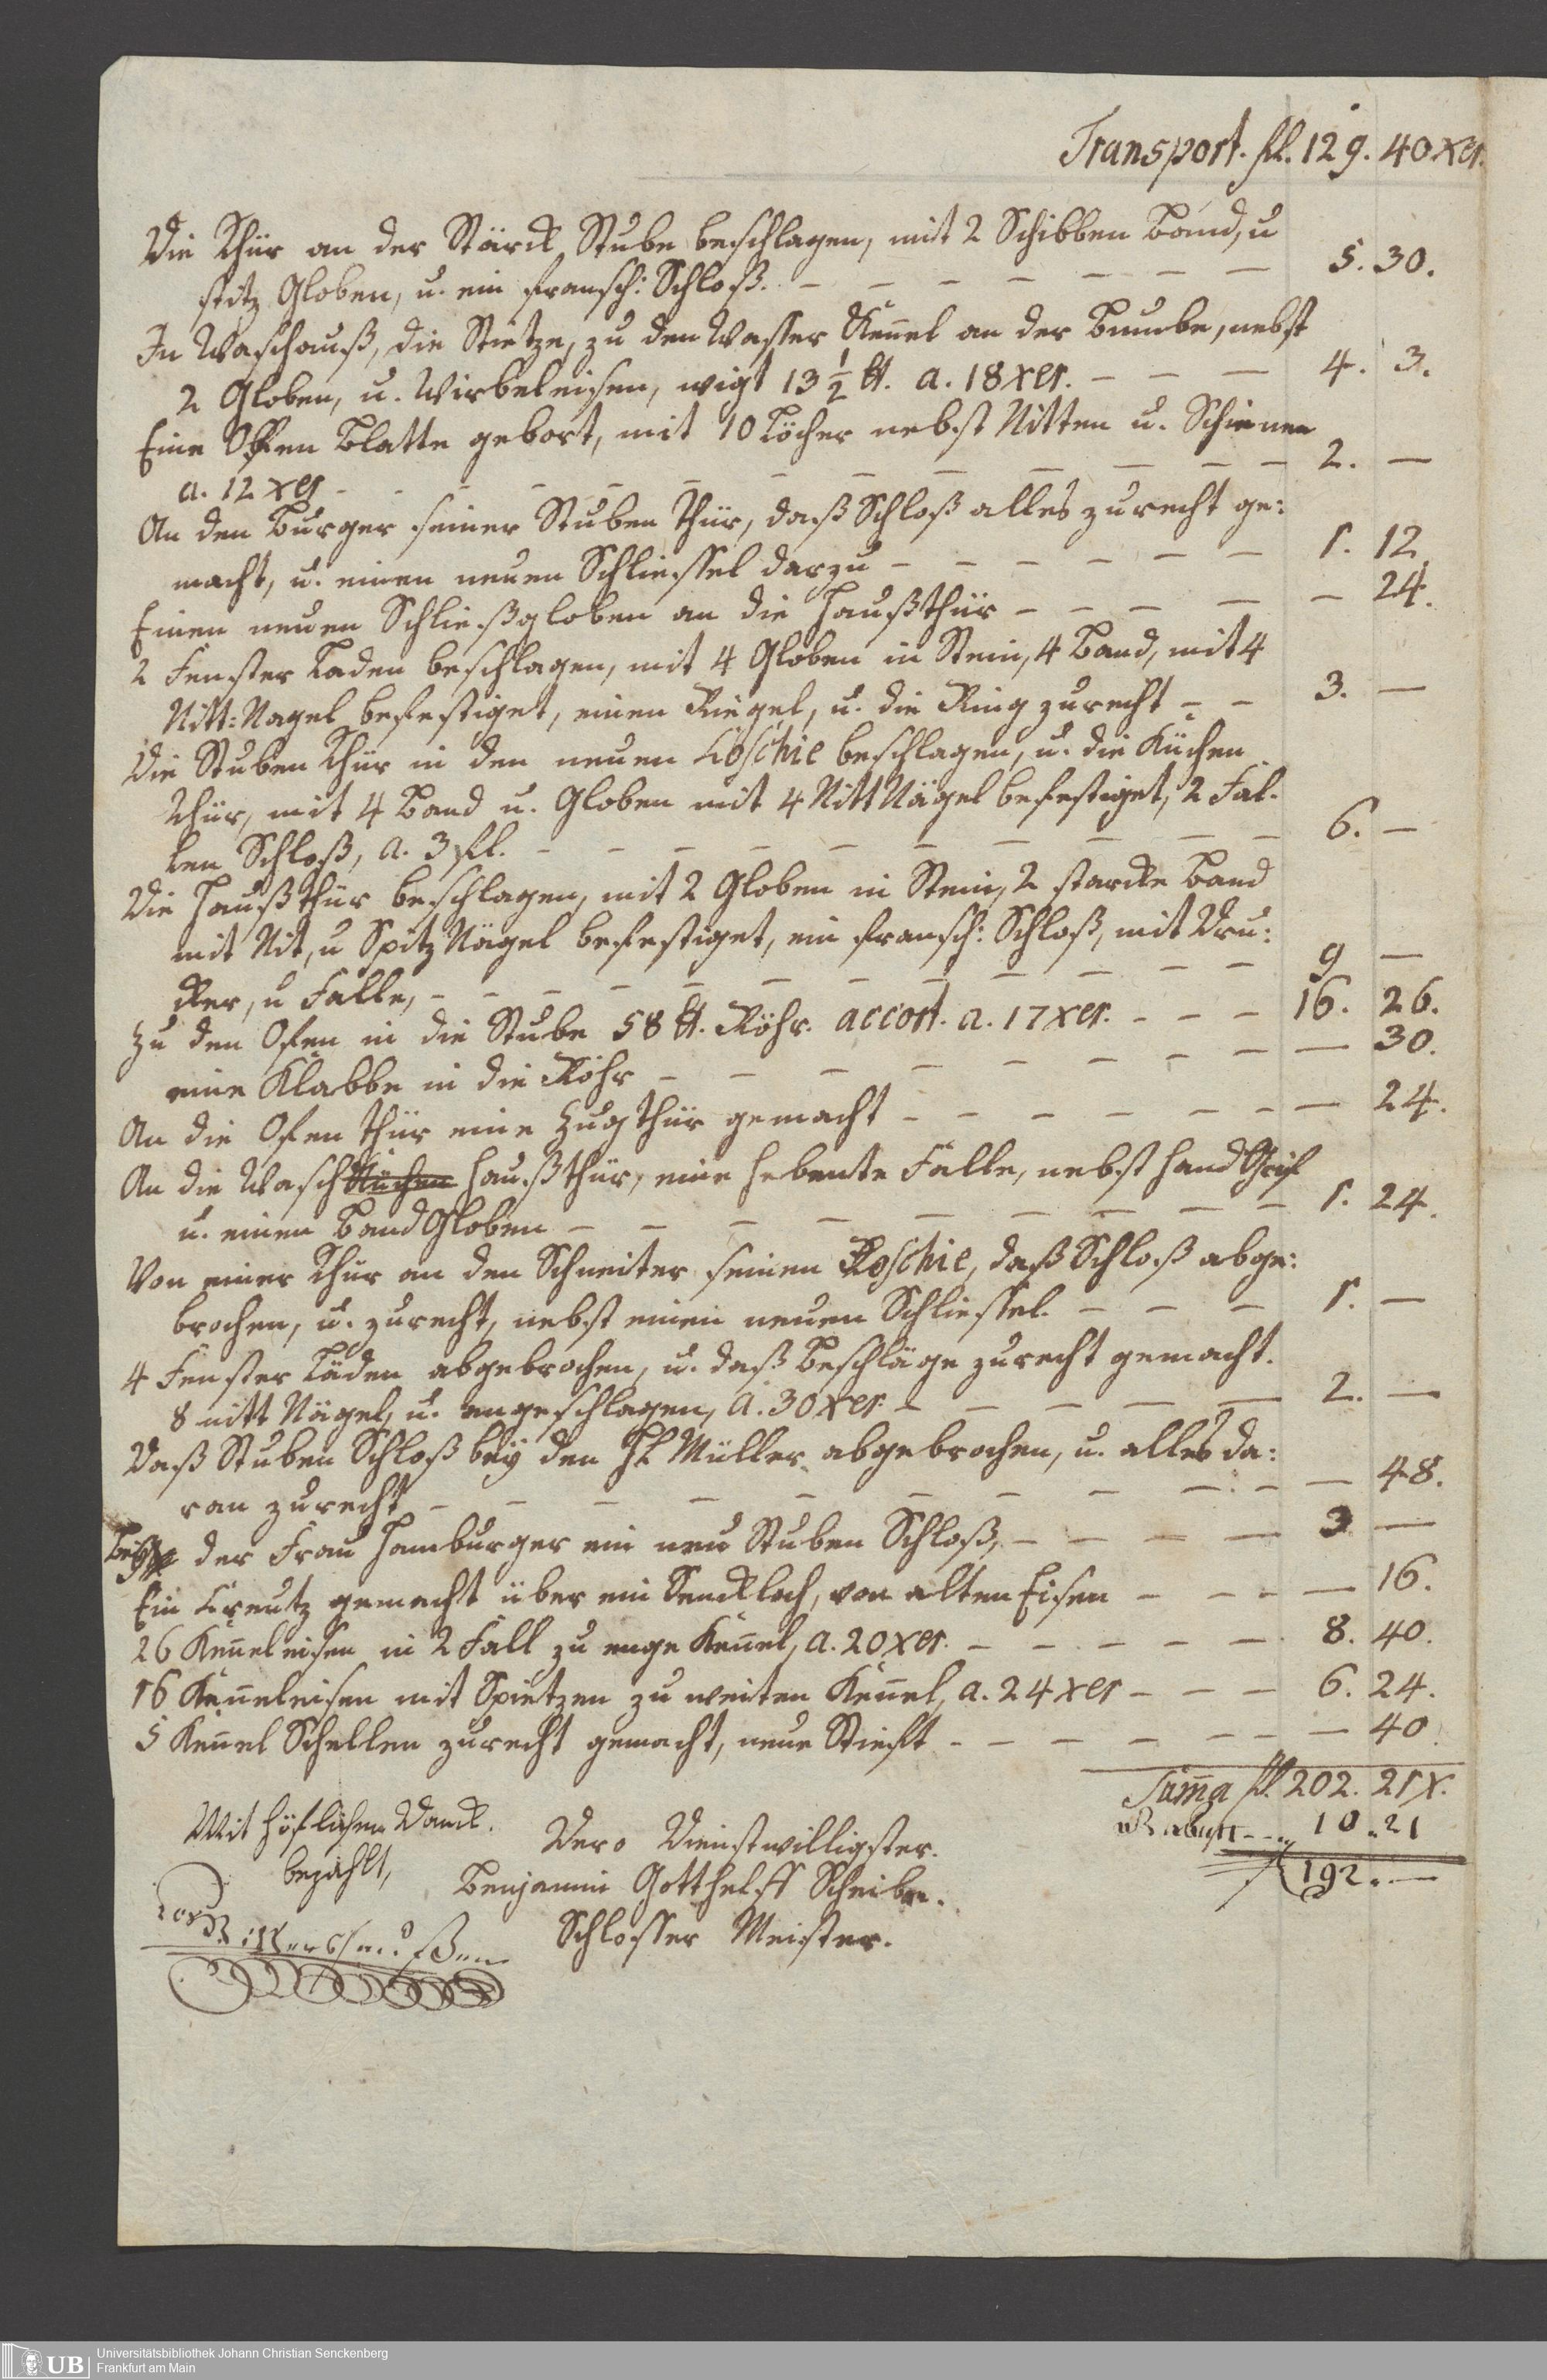 Transport. fl. 129. 40 xer.
Die Thür an der Stärck Stube beschlagen, mit 2 Schibben Band, u
spitz Globen, u. ein fransch: Schloß. – – – – – – – 5. 30.
In Waschauß, die Stietze, zu den Wasser Keñel an der Bumbe, nebst
2 Globen, u. Wirbeleisen, wigt 13 ½ ℔. a. 18 xer. – – – 4. 3.
Eine Offen Blatte gebort, mit 10 Löcher nebst Nitten u. Schienen
a. 12 xer – – – – – – – – – – 2. —
An den Burger seiner Stuben Thür, daß Schloß alles zurecht ge:
macht, u. einen neuen Schliessel darzu – – – – – – 1. 12
Einen neuen Schließgloben an die Haußthür – – – – – 24.
2 Fenster Laden beschlagen, mit 4 Globen in Stein, 4 Band, mit 4
Nitt: Nagel befestiget, einen Riegel, u. die Ring zurecht – – 3. —
Die Stuben Thür in den neuen Loschie beschlagen, u. die Küchen
Thür, mit 4 Band u. Globen mit 4 Nitt Nägel befestiget, 2 Fal-
len Schloß, a. 3 fl. – – – – – – – – – – 6. —
Die Haußthür beschlagen, mit 2 Globen in Stein, 2 starcke Band
mit Nit, u Spitz Nägel befestiget, ein fransch: Schloß, mit Dru:
cker, u Falle, – – – – – – – – – – 9 —
Zu den Ofen in die Stube 58 ℔. Röhr. accort. a. 17 xer. – – – 16. 26.
eine Klabbe in die Röhr – – – – – – – — 30.
An die Ofen Thür eine Zugthür gemacht – – – – – – — 24.
An die Wasch Küchen Haußthür, eine hebente Falle, nebst Hand Grif
u. einen Band Globen – – – – – – – – – 1. 24.
Von einer Thür an den Schneiter seinen Loschie, daß Schloß abge:
brochen, u. zurecht, nebst einen neuen Schliessel. – – – 1. —
4 Fenster Läden abgebrochen, u. daß Beschläge zurecht gemacht.
8 nitt Nägel, u. angeschlagen, a. 30 xer – – – – – 2. —
Daß Stuben Schloß beÿ den H Müller abgebrochen, u. alles da:
ran zurecht – – – – – – – – – – — 48.
Beÿ der Frau Hamburger ein neu Stuben Schloß, – – – – 3 —
Ein Kreutz gemacht über ein Senckloch, von alten Eisen – – – — 16.
26 Keñeleisen in 2 Fall zu enge Keñel, a. 20 xer. – – – – – 8. 40.
16 Keñeleisen mit Spietzen zu weiten Keñel, a. 24 xer – – – 6. 24.
5 Keñel Schellen zurecht gemacht, neue Stieft – – – – – – — 40
Sum̃a fl. 202. 21 x.
Rabatt – – 10. 21
192. —
Mit höflichen Danck.
bezahlt,
Dero Dienstwilligster.
Benjamin Gotthelff Scheibe.
Schlosser Meister.
UB
Universitätsbibliothek Johann Christian Senckenberg
Frankfurt am Main